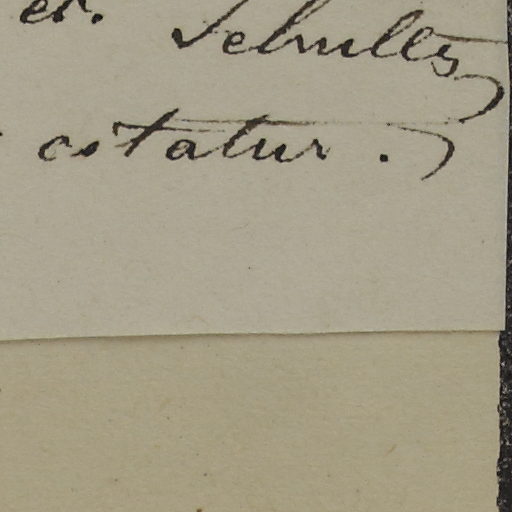 et. Schultes
citatur.)